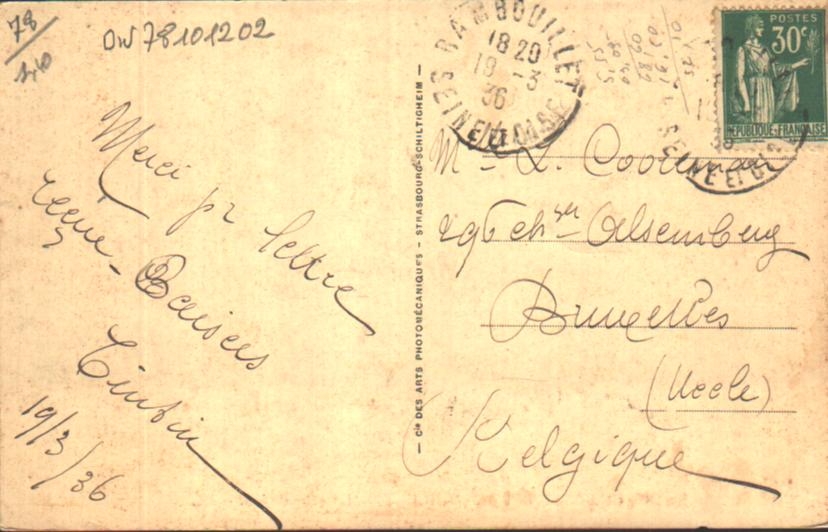 78
OW78101202
Merci pr lettre
reçue - Baisers
Tintin
19/3/36
Cie DES ARTS PHOTOMÉCANIQUES - STRASBOURG-SCHILTIGHEIM
RAMBOUILLET
18 20
19 - 3
36
SEINE ET OISE
POSTES
30c
RÉPUBLIQUE FRANÇAISE
SEINE ET OISE
Mr L.
296 chsée Alsemberg
Bruxelles
(Uccle)
Belgique